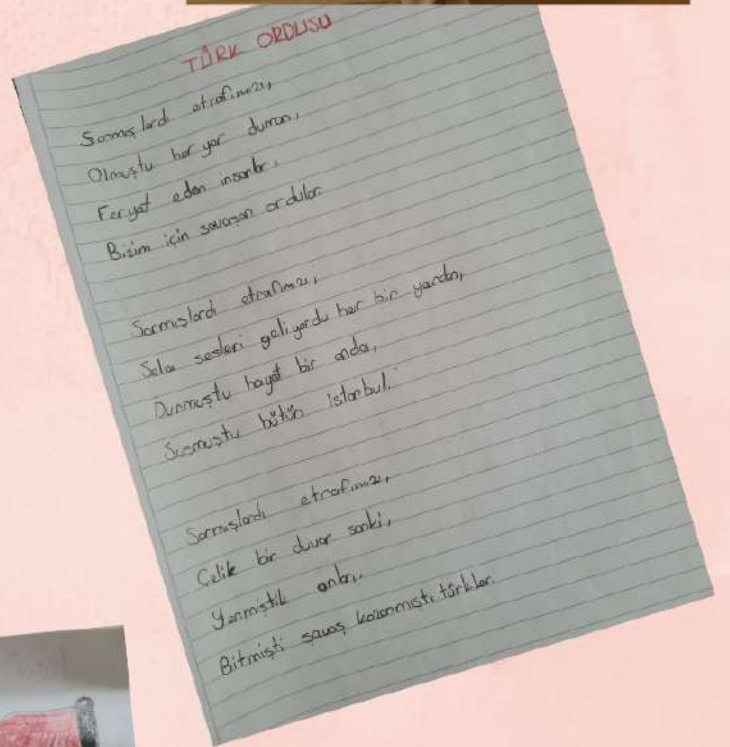 TÜRK ORDUSU
Sarmışlardı etrafımızı,
Olmuştu her yer duman,
Feryat eden insanlar,
Bizim için savaşan ordular.
Sarmışlardı etrafımızı,
Sela sesleri geliyordu her bir yandan,
Durmuştu hayat bir anda,
Susmuştu bütün istanbul.
Sarmışlardı etrafımızı,
Çelik bir duvar sanki,
Yenmiştik onları,
Bitmişti savaş kazanmıştı türkler.